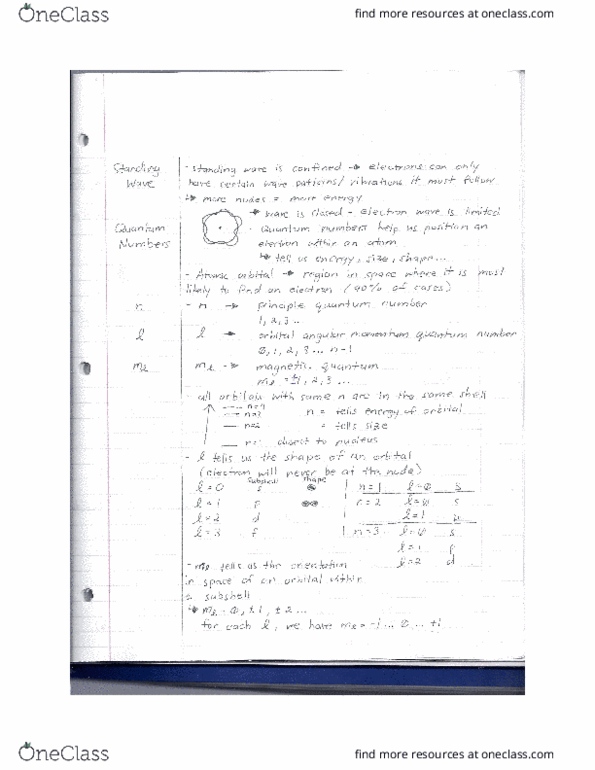 OneClass
find more resources at oneclass.com
Standing Wave
- Standing wave is confined → electrons can only
have certain wave patterns/ vibrations it must follow
↳ more nodes = more energy
↳ wave is closed - electron wave is limited
Quantum Numbers
- Quantum numbers help us position an
electron within an atom
↳ tell us energy, size, shape...
- Atomic orbital → region in space where it is most
likely to find an electron (90% of cases)
n
- n → principle quantum number
1, 2, 3 ..
l
l → orbital angular momentum quantum number
0, 1, 2, 3 ... n-1
ml
ml → magnetic quantum
ml = ±1, 2, 3 ...
all orbitals with same n are in the same shell
n=4
n=3
n = tells energy of orbital
n=2
= tells size
n=1 closest to nucleus
- l tells us the shape of an orbital
(electron will never be at the node)
subshell shape
l = 0 s
l = 1 p
l = 2 d
l = 3 f
n = 1 l = 0 s
n = 2 l = 0 s
l = 1 p
n = 3 l = 0 s
l = 1 p
l = 2 d
- ml tells us the orientation
in space of an orbital within
a subshell
↳ ml = 0, ±1, ±2 ...
for each l, we have ml = -l ... 0 ... +l
OneClass
find more resources at oneclass.com